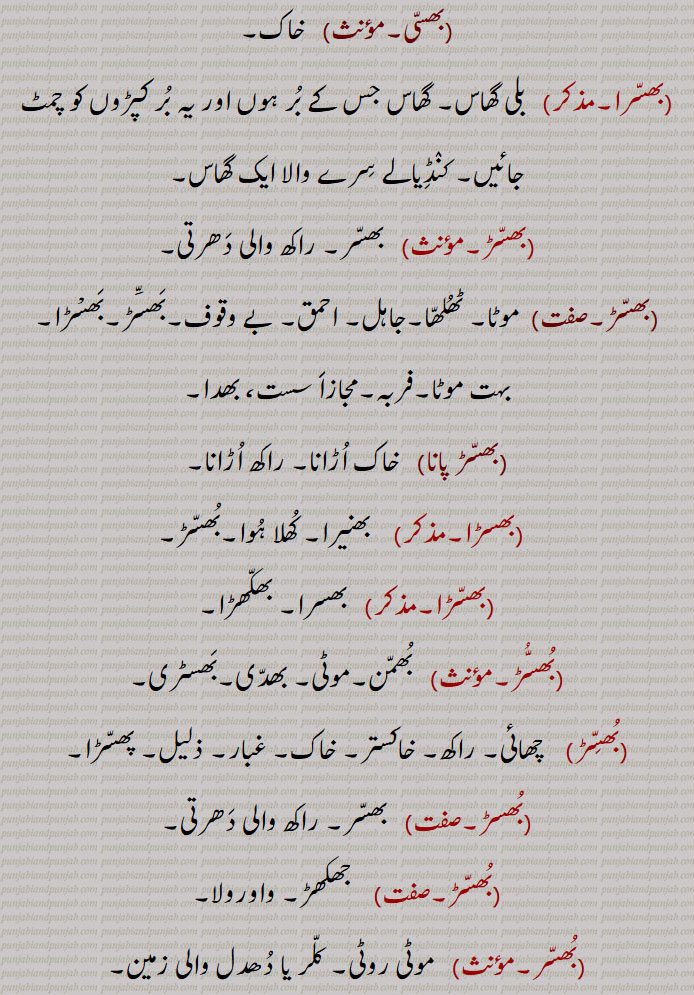 (بھسّی۔مؤنث) خاک۔
(بھسّرا۔مذکر) بلی گھاس۔ گھاس جس کے بُر ہوں اور یہ بُر کپڑوں کو چمٹ
جائیں۔ کنْڈِیالے سِرے والا ایک گھاس۔
(بھسّڑ۔مؤنث) بھسّر۔ راکھ والی دَھرتی۔
(بھسّڑ۔صفت) موٹا۔ ٹھُلھّا۔جاہل۔ احمق۔ بے وقوف۔بَھسِّڑ۔بَھسْڑا۔
بہت موٹا۔فربہ۔مجازاً سست، بھدا۔
(بھسّڑ پانا) خاک اُڑانا۔ راکھ اُڑانا۔
(بھسڑا۔مذکر) بھنیرا۔ کُھلا ہُوا۔بُھسّڑ۔
(بھسّڑا۔مذکر) بھسرا۔ بھکّھڑا۔
(بُھسُّڑ۔مؤنث) بُھمّن۔موٹی۔ بھدّی۔بَھسڑی۔
(بُھسِّڑ) چھائی۔ راکھ۔ خاکستر۔ خاک۔ غبار۔ ذلیل۔ پھسّڑا۔
(بُھسڑ۔صفت) بھسّر۔ راکھ والی دَھرتی۔
(بُھسّڑ۔صفت) جھکھڑ۔ واورولا۔
(بُھسّر۔مؤنث) موٹی روٹی۔ کلّر یا دُھدل والی زمین۔